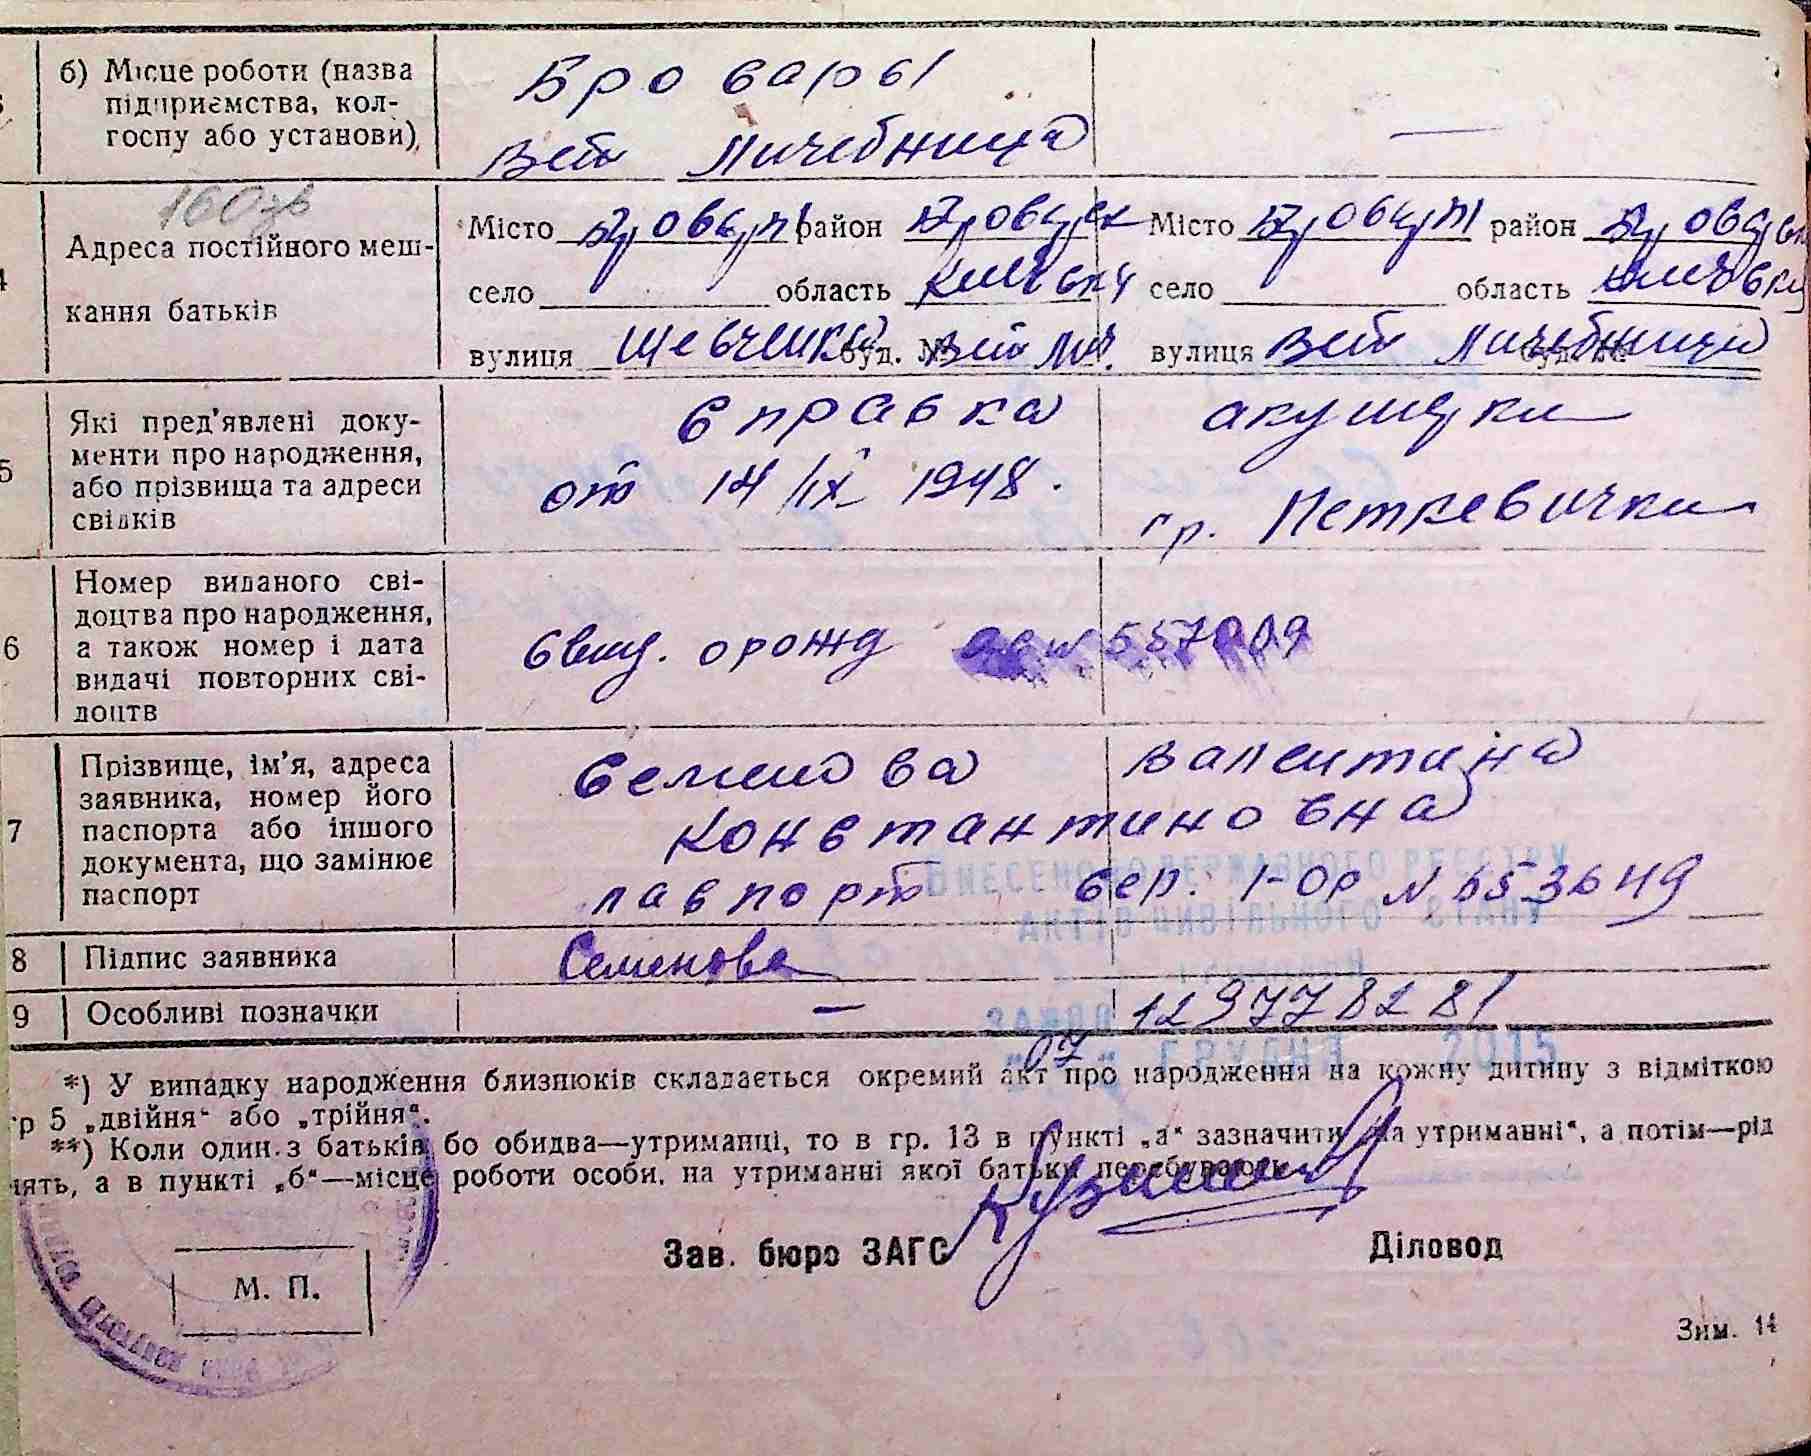 б) Місце роботи (назва
підприємства, кол-
госпу або установи)
Бровары
Вет Личебница
—
160зв
Адреса постійного меш-
кання батьків
Місто Бровары район Броварск Місто Бровары район Броварск
село область Киевск село область Киевск
вулиця Шевченка буд. № Вет Лич. вулиця Вет Личебница
5 Які пред'явлені доку-
менти про народження,
або прізвища та адреси
свідків
Справка акушерки
от 14/IX 1948. гр. Петкевички
6 Номер виданого сві-
доцтва про народження,
а також номер і дата
видачі повторних сві-
доцтв
Свид. орожд № 557009
7 Прізвище, ім'я, адреса
заявника, номер його
паспорта або іншого
документа, що замінює
паспорт
Семенова Валентина
Константиновна
паспорт сер. I-ОР №
ВНЕСЕНО ДО ДЕРЖАВНОГО РЕЄСТРУ
АКТІВ ЦИВІЛЬНОГО СТАНУ
ГРОМАДЯН
8 Підпис заявника Семенова
9 Особливі позначки —
ЗА №
"07" ГРУДНЯ 2015
*) У випадку народження близнюків складається окремий акт про народження на кожну дитину з відміткою
гр 5 „двійня" або „трійня".
**) Коли один з батьків бо обидва—утриманці, то в гр. 13 в пункті „а" зазначити на утриманні", а потім—рід
нять, а в пункті „б"—місце роботи особи, на утриманні якої батьки перебувають
Зав. бюро ЗАГС Діловод
М. П.
Зим. 14